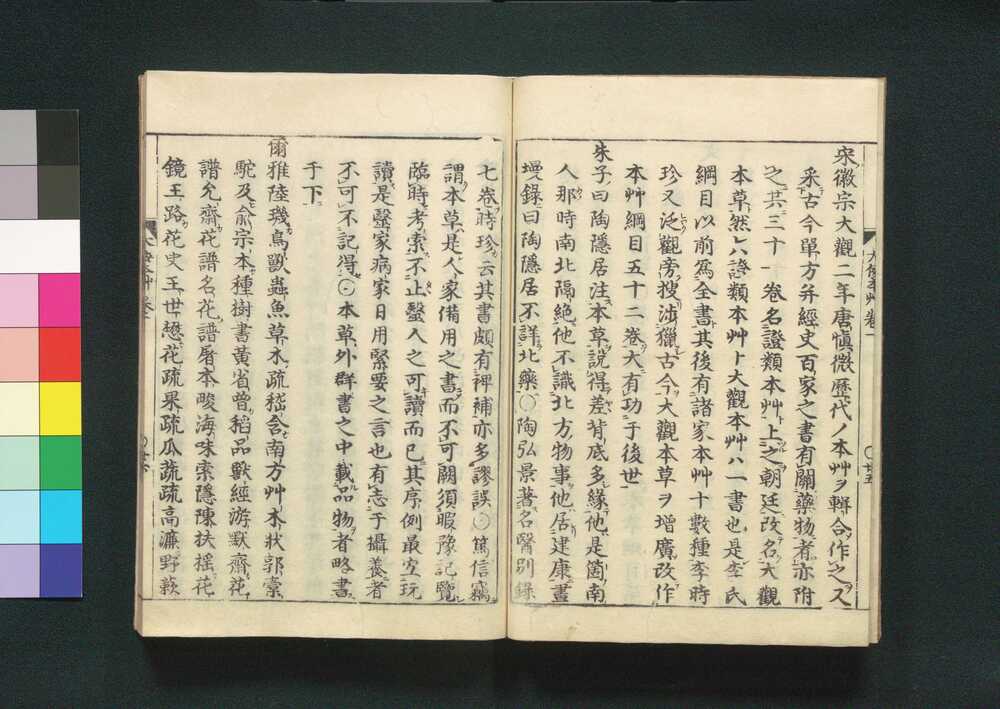 宋徽宗大觀二年唐愼微歷代ノ本艸ヲ輯合作之又
采古今單方并經史百家之書有關藥物者亦附
之共三十一卷名證類本艸上之朝廷改名大觀
本草然ハ證類本艸ト大觀本艸ハ一書也是李氏
綱目以前爲全書其後有諸家本艸十數種李時
珍又泛觀旁搜渉獵古今大觀本草ヲ增廣改作
本艸綱目五十二卷大有功于後世
朱子曰陶隱居注本草說得差背底多緣他是箇南
人那時南北隔絶他不識北方物事他居建康畫
墁錄曰陶隱居不詳北藥○陶弘景著名醫别錄
七卷時珍云其書頗有裨補亦多謬誤○篤信竊
謂本草是人家備用之書而不可闕須暇豫記覽
臨時考索不止醫人之可讀而已其序例最宜玩
讀是醫家病家日用緊要之言也有志于攝養者
不可不記得○本草外群書之中載品物者略書
于下
爾雅陸璣鳥獸蟲魚草木疏嵇含南方艸木狀郭橐
駝及兪宗本種樹書黃省曾稻品獸經游默齋花
譜允齋花譜名花譜屠本畯海味索隱陳扶搖花
鏡王路花史王世懋花疏果疏瓜蔬疏高濂野蔌
大倭本艸卷一
○廿五